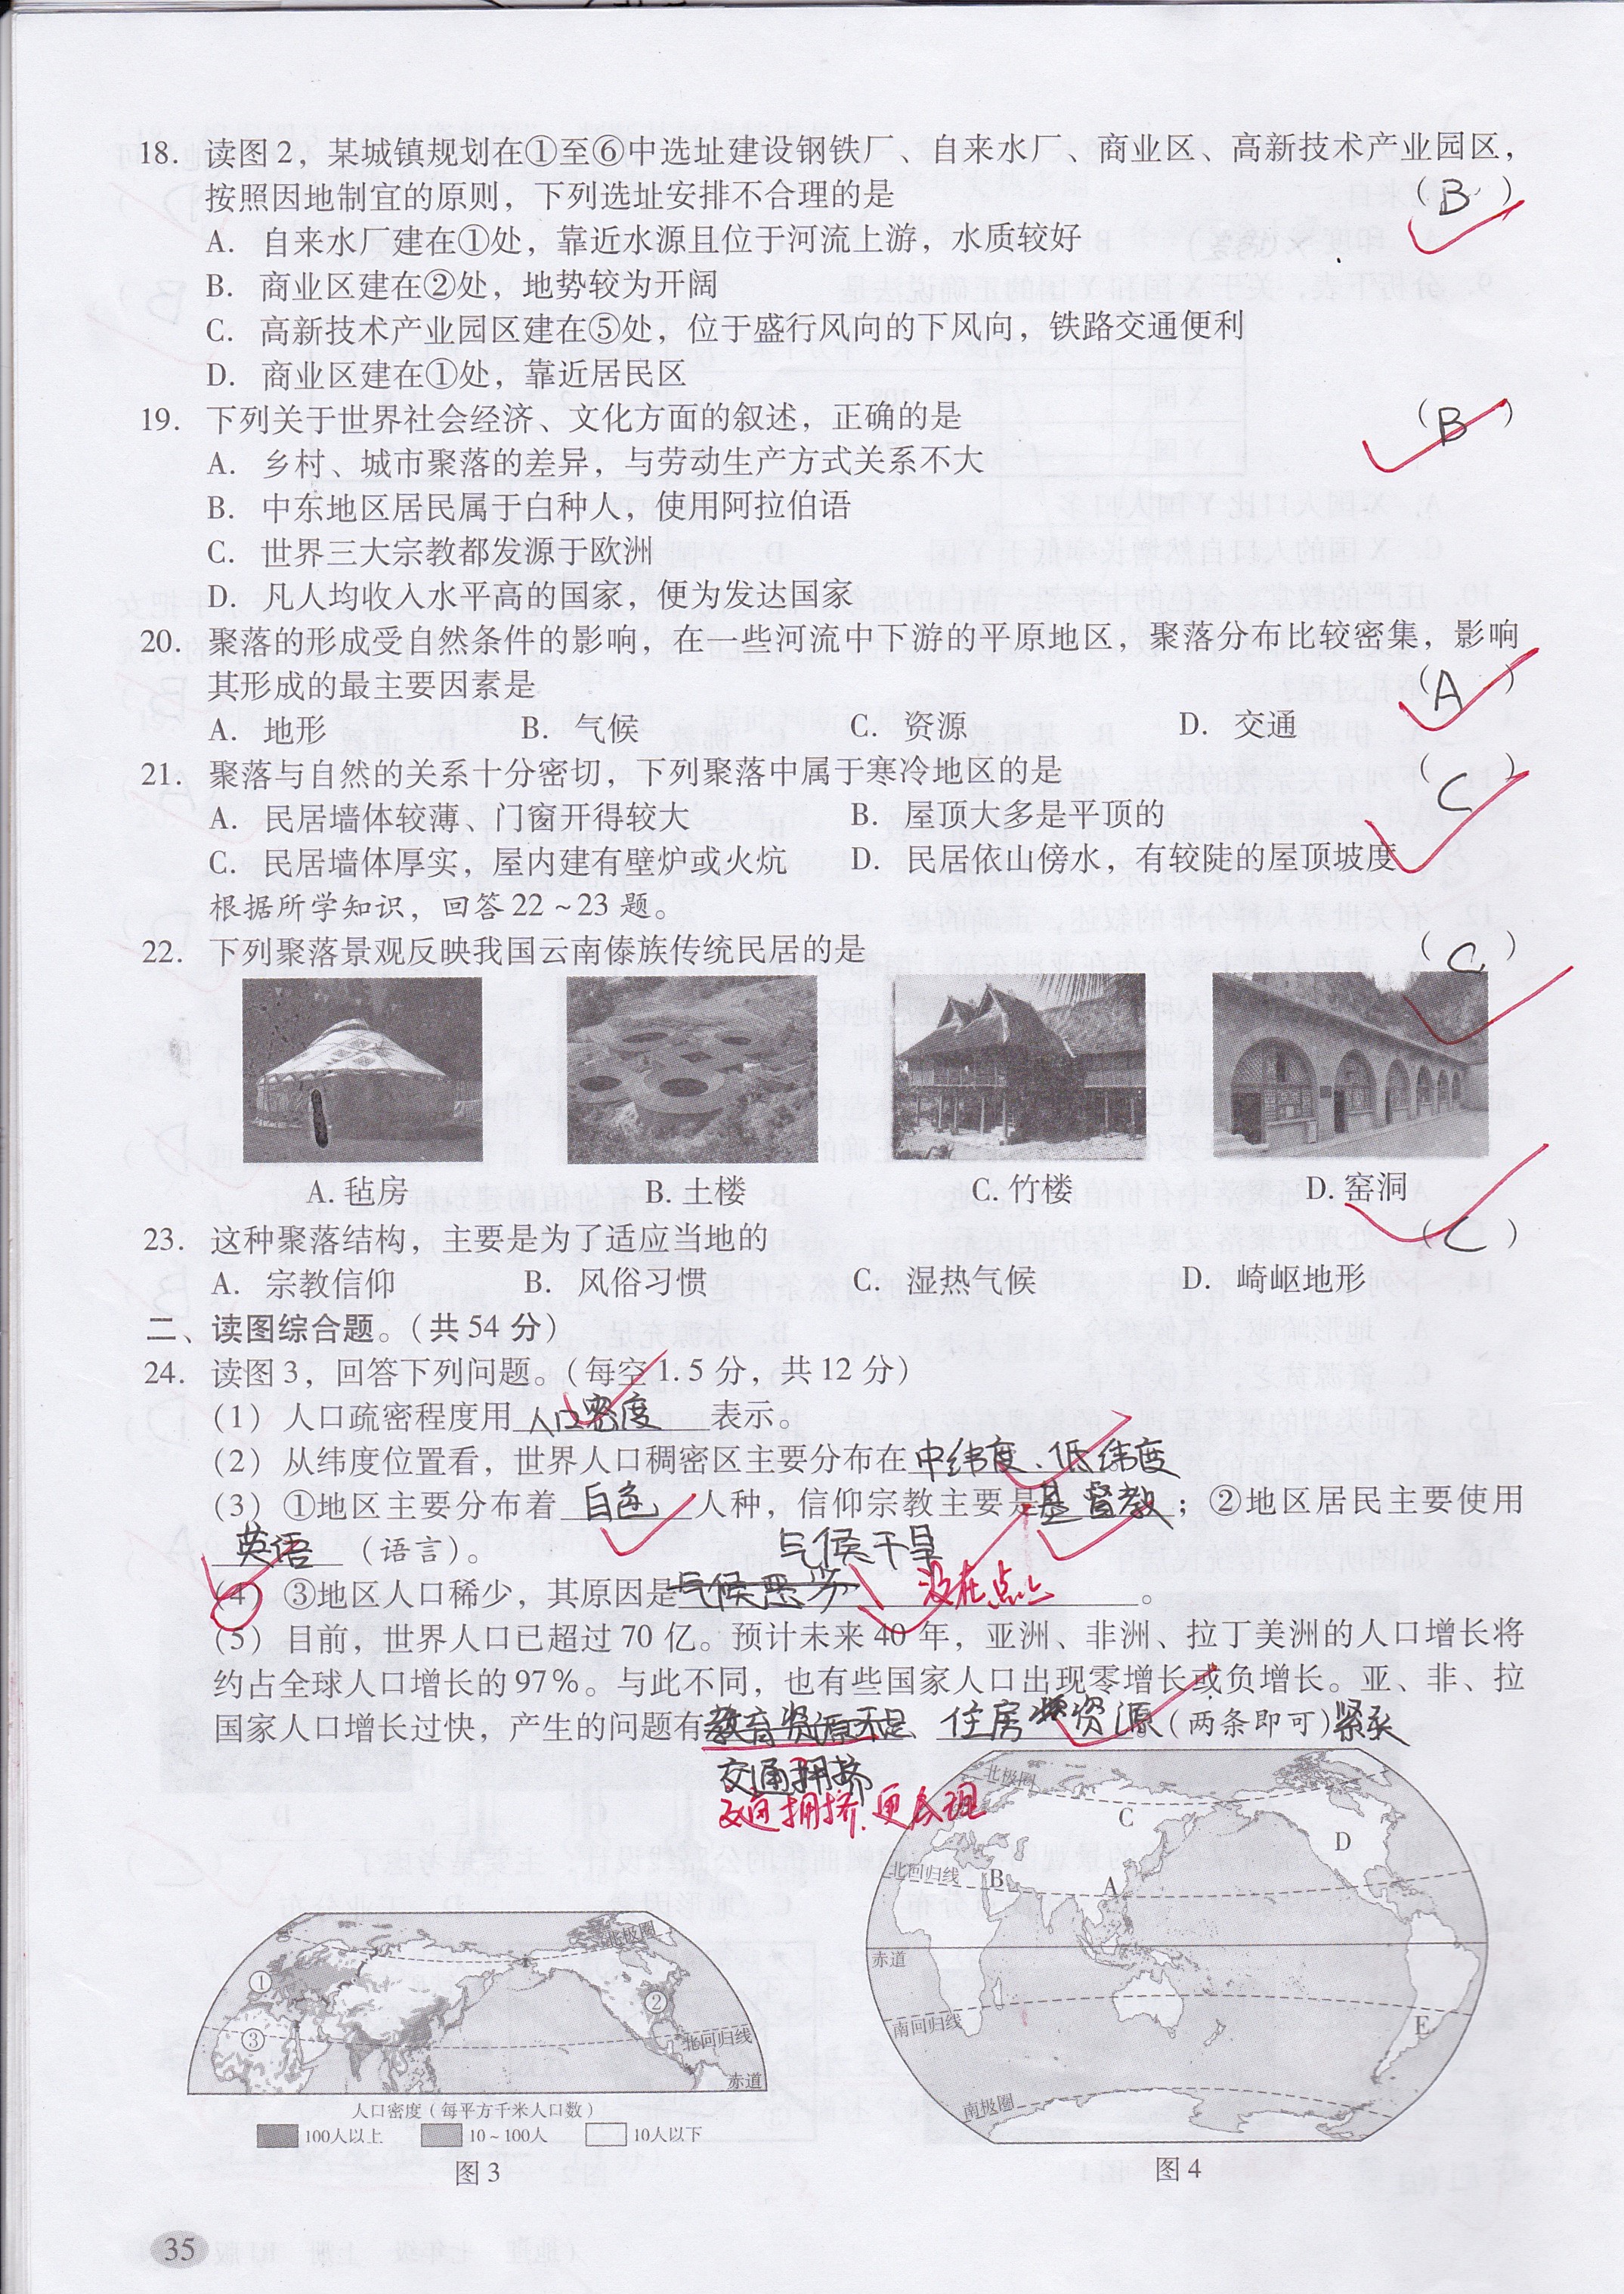 18. 读图2，某城镇规划在①至⑥中选址建设钢铁厂、自来水厂、商业区、高新技术产业园区，
按照因地制宜的原则，下列选址安排不合理的是 （B）
A. 自来水厂建在①处，靠近水源且位于河流上游，水质较好
B. 商业区建在②处，地势较为开阔
C. 高新技术产业园区建在⑤处，位于盛行风向的下风向，铁路交通便利
D. 商业区建在①处，靠近居民区
19. 下列关于世界社会经济、文化方面的叙述，正确的是 （B）
A. 乡村、城市聚落的差异，与劳动生产方式关系不大
B. 中东地区居民属于白种人，使用阿拉伯语
C. 世界三大宗教都发源于欧洲
D. 凡人均收入水平高的国家，便为发达国家
20. 聚落的形成受自然条件的影响，在一些河流中下游的平原地区，聚落分布比较密集，影响
其形成的最主要因素是 （A）
A. 地形 B. 气候 C. 资源 D. 交通
21. 聚落与自然的关系十分密切，下列聚落中属于寒冷地区的是 （C）
A. 民居墙体较薄、门窗开得较大 B. 屋顶大多是平顶的
C. 民居墙体厚实，屋内建有壁炉或火炕 D. 民居依山傍水，有较陡的屋顶坡度
根据所学知识，回答22～23题。
22. 下列聚落景观反映我国云南傣族传统民居的是 （C）
A. 毡房 B. 土楼 C. 竹楼 D. 窑洞
23. 这种聚落结构，主要是为了适应当地的 （C）
A. 宗教信仰 B. 风俗习惯 C. 湿热气候 D. 崎岖地形
二、读图综合题。（共54分）
24. 读图3，回答下列问题。（每空1.5分，共12分）
（1）人口疏密程度用人口密度表示。
（2）从纬度位置看，世界人口稠密区主要分布在中纬度、低纬度
（3）①地区主要分布着白色人种，信仰宗教主要是基督教；②地区居民主要使用
英语（语言）。
气候干旱
（4）③地区人口稀少，其原因是气候恶劣 没在点上。
（5）目前，世界人口已超过70亿。预计未来40年，亚洲、非洲、拉丁美洲的人口增长将
约占全球人口增长的97%。与此不同，也有些国家人口出现零增长或负增长。亚、非、拉
国家人口增长过快，产生的问题有教育资源不足、住房资源（两条即可）紧张
交通拥挤
交通拥挤、更
北极圈
C
D
北回归线
B
A
赤道
南回归线
E
南极圈
图4
北极圈
①
②
③
北回归线
赤道
人口密度（每平方千米人口数）
100人以上 10～100人 10人以下
图3
35